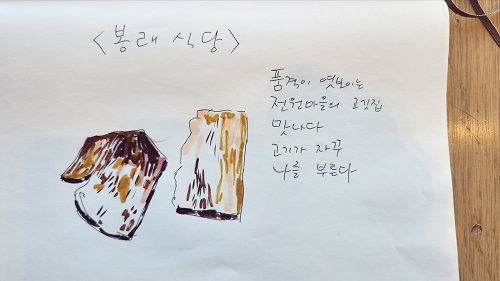 <봉래식당>
품격이 엿보이는
전원마을의 고깃집
맛나다
고기가 자꾸
나를 부른다